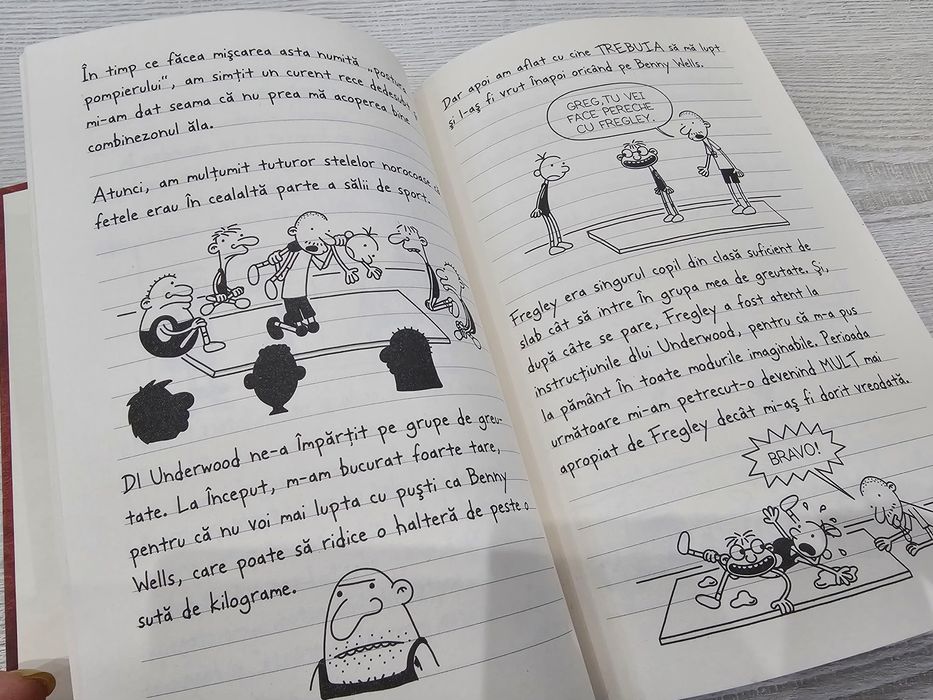 În timp ce făcea mişcarea asta numită „postura
pompierului”, am simţit un curent rece dedesubt
mi-am dat seama că nu prea mă acoperea bine
combinezonul ăla.
Atunci, am mulţumit tuturor stelelor norocoase că
fetele erau în cealaltă parte a sălii de sport.
Dl Underwood ne-a împărţit pe grupe de greu-
tate. La început, m-am bucurat foarte tare,
pentru că nu voi mai lupta cu puşti ca Benny
Wells, care poate să ridice o halteră de peste o
sută de kilograme.
Dar apoi am aflat cu cine TREBUIA să mă lupt
şi l-aş fi vrut înapoi oricând pe Benny Wells.
GREG, TU VEI
FACE PERECHE
CU FREGLEY.
Fregley era singurul copil din clasă suficient de
slab cât să intre în grupa mea de greutate. Şi,
după câte se pare, Fregley a fost atent la
instrucţiunile dlui Underwood, pentru că m-a pus
la pământ în toate modurile imaginabile. Perioada
următoare mi-am petrecut-o devenind MULT mai
apropiat de Fregley decât mi-aş fi dorit vreodată.
BRAVO!